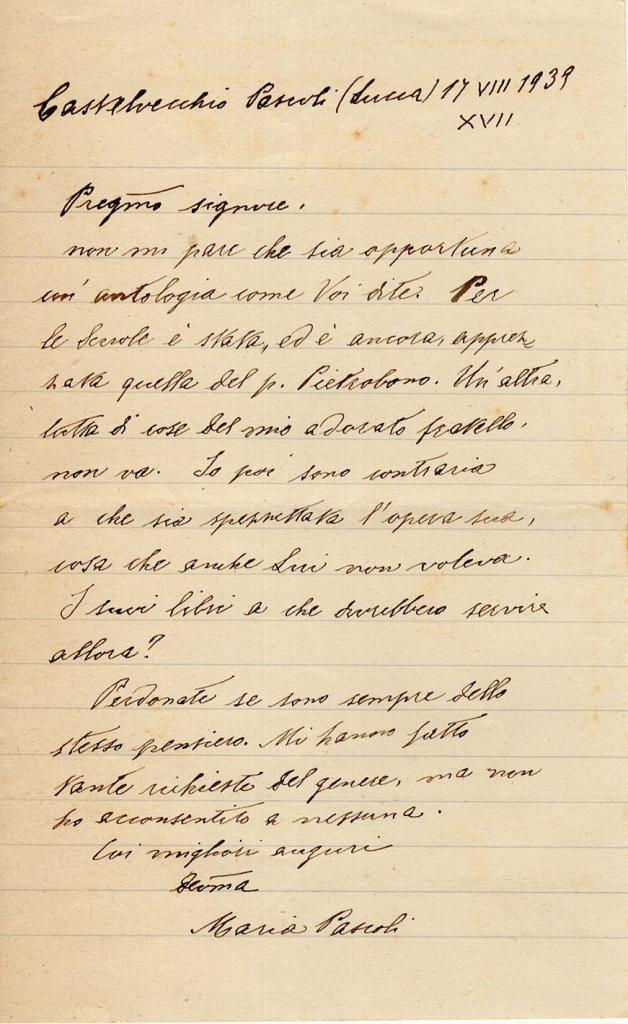 Castelvecchio Pascoli (Lucca) 17 VIII 1939
XVII
Pregmo signore.
non mi pare che sia opportuna
un'antologia come Voi dite. Per
le Scuole è stata, ed è ancora, apprez
zata quella del p. Pietrobono. Un'altra,
tutta di cose del mio adorato fratello,
non va. Io poi sono contraria
a che sia spezzettata l'opera sua,
cosa che anche Lui non voleva.
I suoi libri a che dovrebbero servire
allora?
Perdonate se sono sempre dello
stesso pensiero. Mi hanno fatto
tante richieste del genere, ma non
ho acconsentito a nessuna.
Coi migliori auguri
Devma
Maria Pascoli